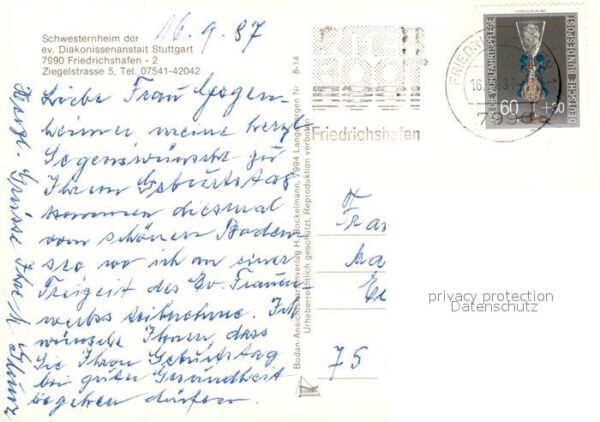 16.9.87
Schwesternheim der
ev. Diakonissenanstalt Stuttgart
7990 Friedrichshafen - 2
Ziegelstrasse 5, Tel. 07541-42042
Liebe Frau Gegen-
heimer meine herzl.
Segenswünsche zu
Ihrem Geburtstag
kommen diesmal
vom schönen Boden-
see wo ich an einer
Freizeit des Ev. Frauen
werks teilnehme. Ich
wünsche Ihnen, dass
Sie Ihren Geburtstag
bei guter Gesundheit
begehen dürfen.
Herzl. Grüsse Ihre
Bodan-Ansichtskartenverlag H. Bockelmann, 7994 Langenargen Nr. 8-14
Urheberrechtlich geschützt, Reproduktion verboten
Friedrichshafen
FRIED
16.
799
WOHLFAHRTSPFLEGE
60 +30
DEUTSCHE BUNDESPOST
75
privacy protection
Datenschutz